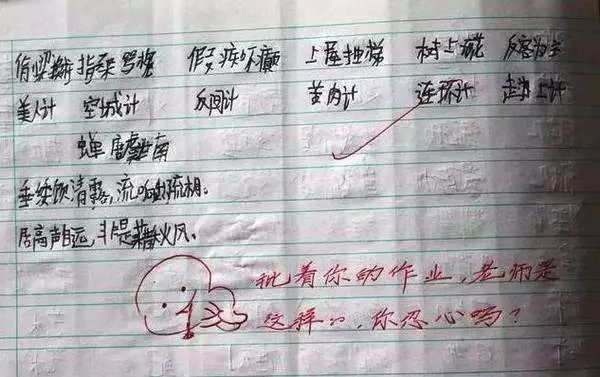 指桑骂槐 上屋抽梯 树上开花 反客为主
美人计 空城计 反间计 苦肉计 连环计 走为上计
蝉 虞世南
垂緌饮清露,流响出疏桐。
居高声自远,非是藉秋风。
批着你的作业,老师是
这样的,你忍心吗?